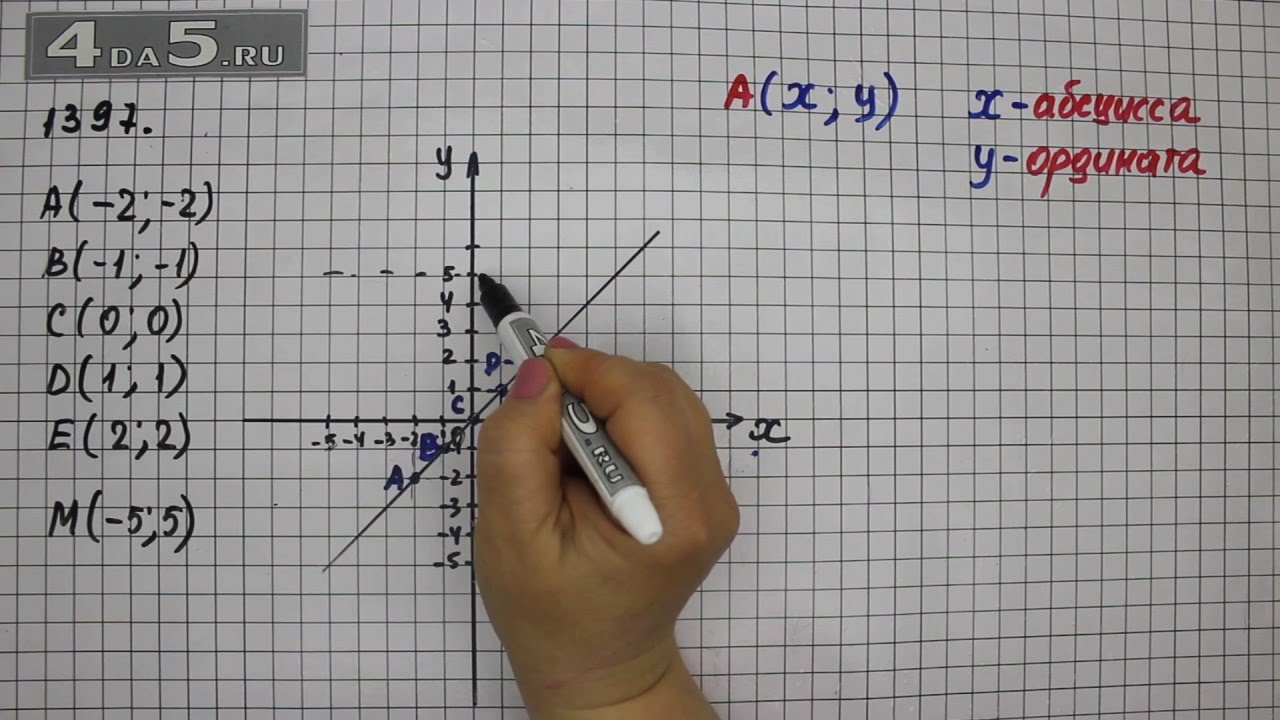 4DA5.RU
1397.
A(x; y)
x - абсцисса
y - ордината
A(-2; -2)
B(-1; -1)
C(0; 0)
D(1; 1)
E(2; 2)
M(-5; 5)
y
5
4
3
2
1
D
C
-5 -4 -3 -2
x
B
A
-2
-3
-4
-5
.RU